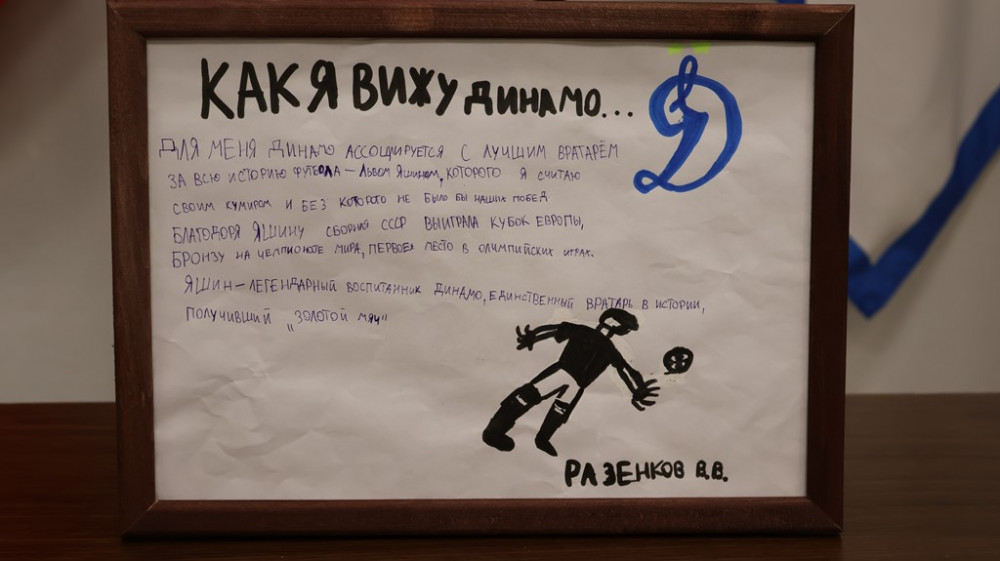 КАК Я ВИЖУ ДИНАМО...
ДЛЯ МЕНЯ ДИНАМО АССОЦИИРУЕТСЯ С ЛУЧШИМ ВРАТАРЁМ
ЗА ВСЮ ИСТОРИЮ ФУТБОЛА – ЛЬВОМ ЯШИНОМ, КОТОРОГО Я СЧИТАЮ
СВОИМ КУМИРОМ И БЕЗ КОТОРОГО НЕ БЫЛО БЫ НАШИХ ПОБЕД
БЛАГОДОРЯ ЯШИНУ СБОРНАЯ СССР ВЫИГРАЛА КУБОК ЕВРОПЫ,
БРОНЗУ НА ЧЕМПИОНАТЕ МИРА, ПЕРВОЕ МЕСТО В ОЛИМПИЙСКИХ ИГРАХ.
ЯШИН – ЛЕГЕНДАРНЫЙ ВОСПИТАННИК ДИНАМО, ЕДИНСТВЕННЫЙ ВРАТАРЬ В ИСТОРИИ,
ПОЛУЧИВШИЙ „ЗОЛОТОЙ МЯЧ"
РАЗЕНКОВ В.В.